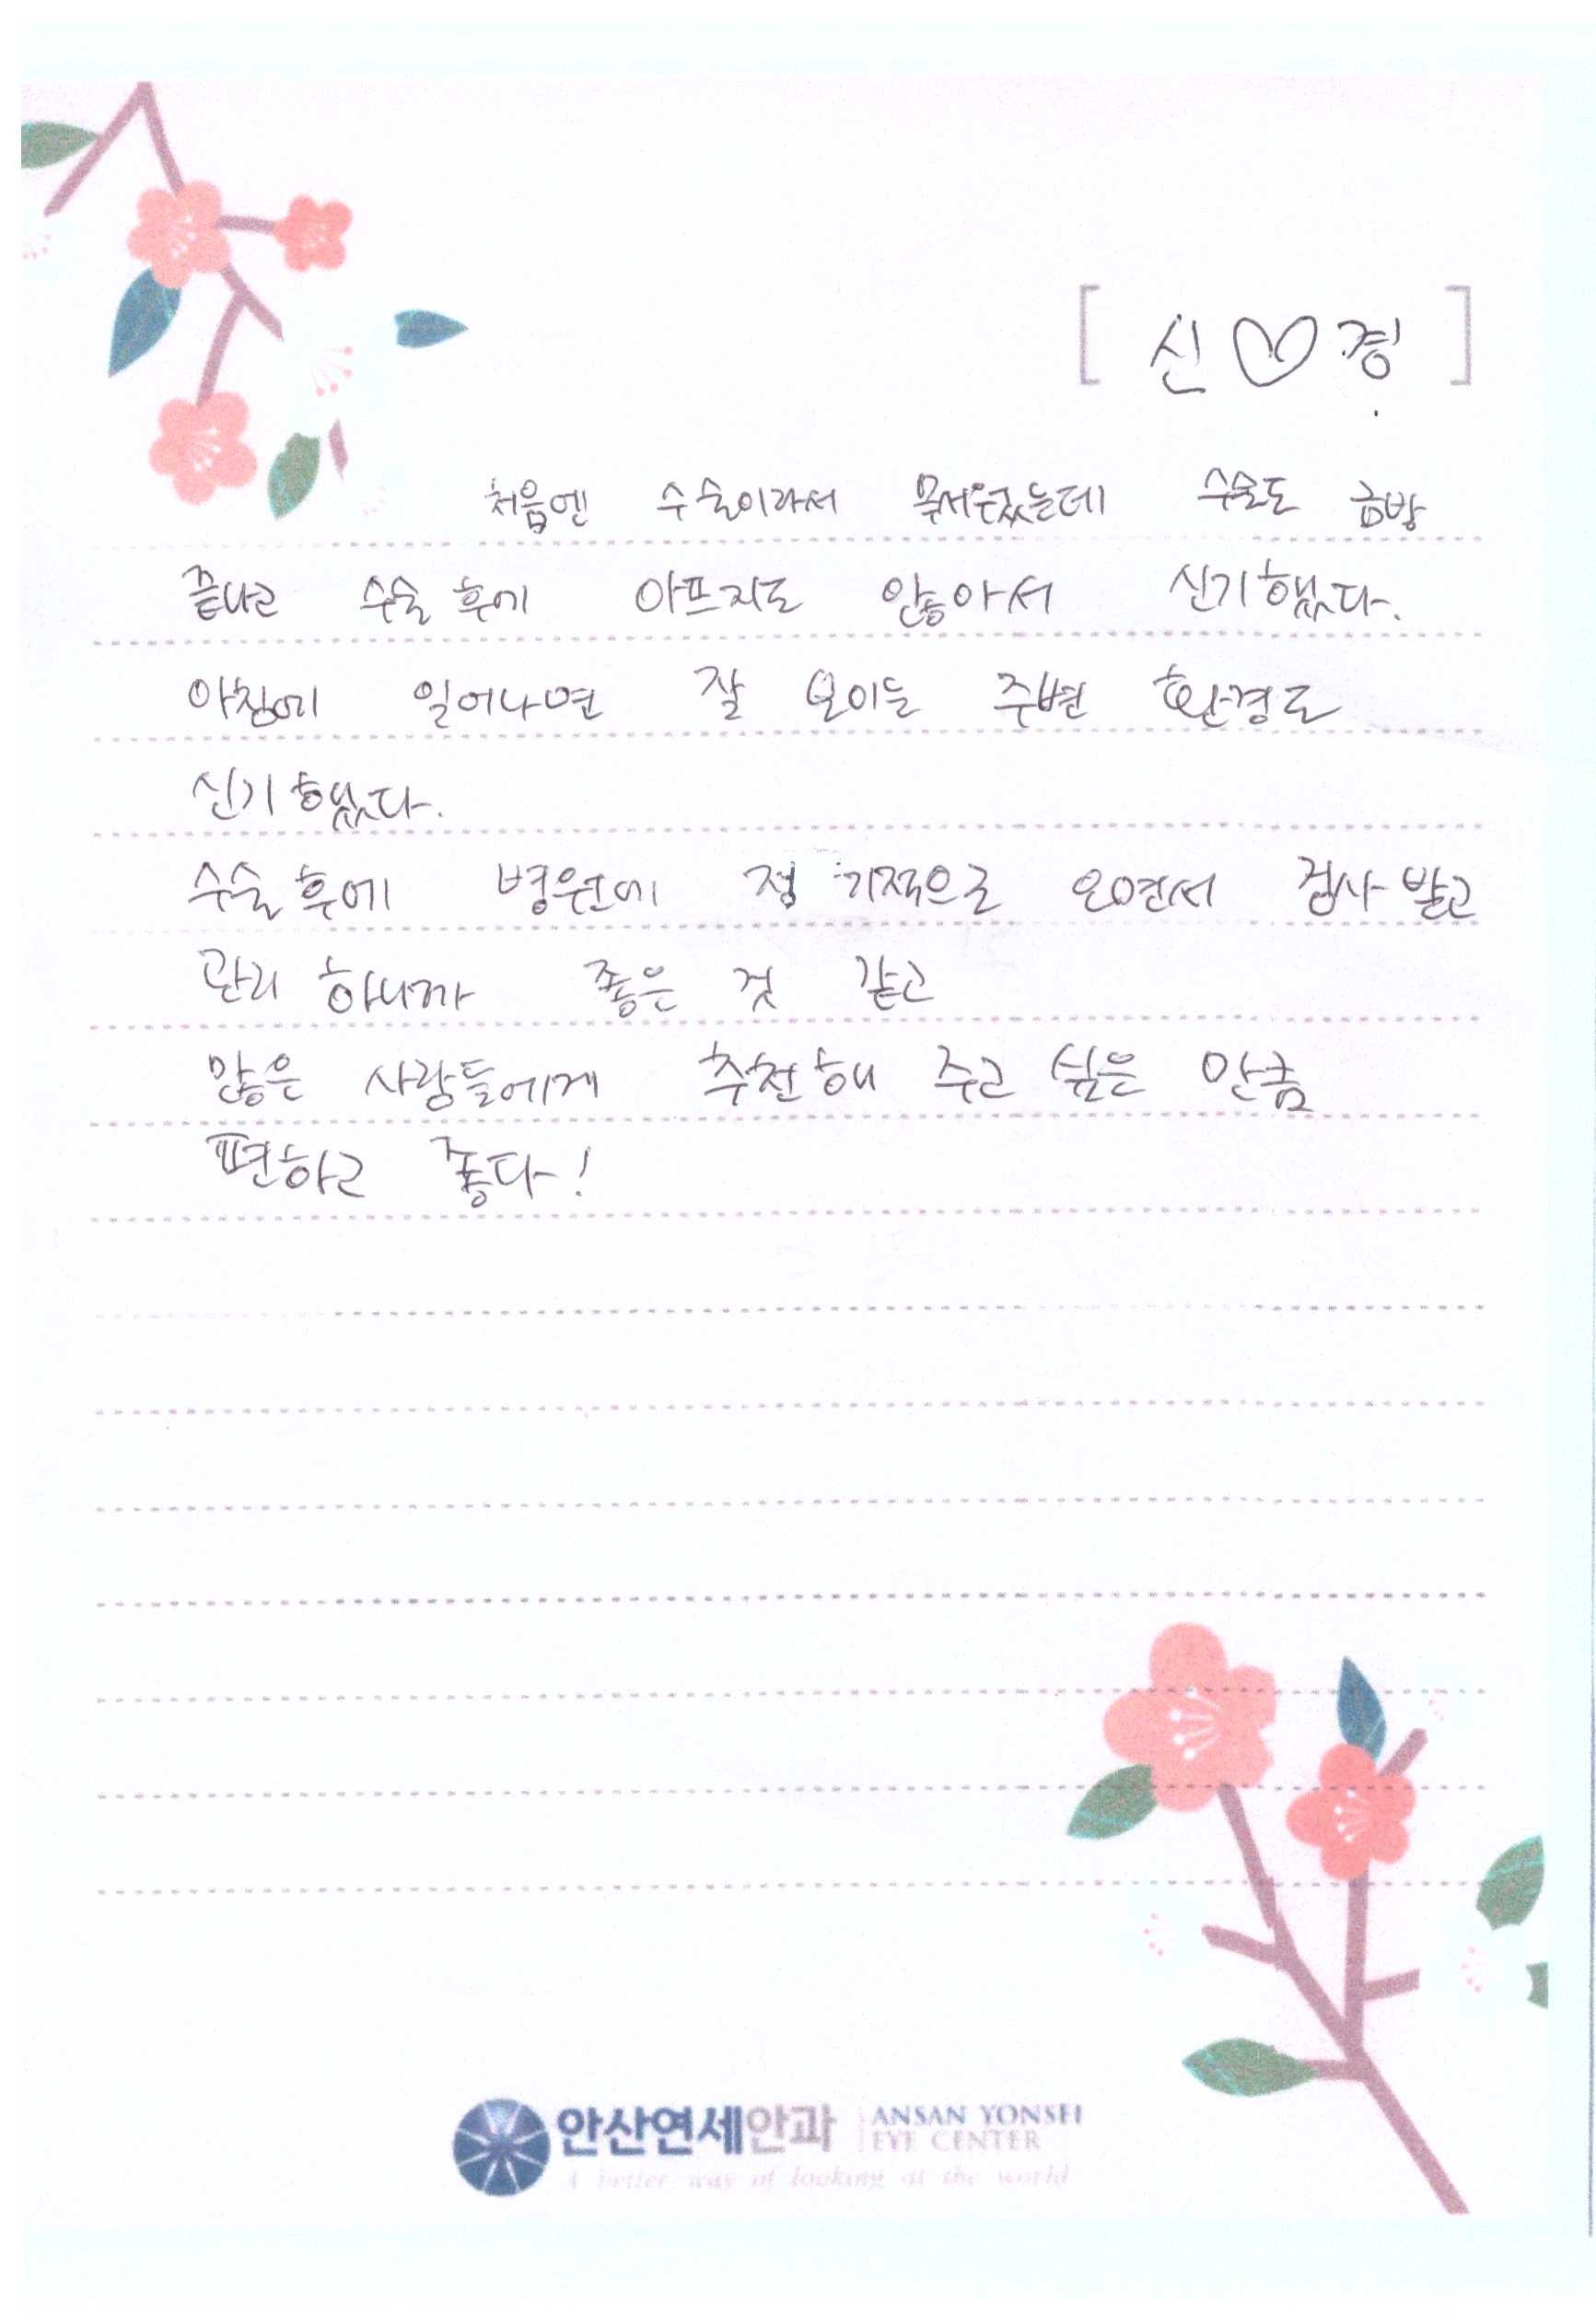 [ 신♡경 ]
처음엔 수술이라서 무서웠는데 수술도 금방
끝나고 수술 후에 아프지도 않아서 신기했다.
아침에 일어나면 잘 보이는 주변 환경도
신기했다.
수술 후에 병원에 정기적으로 오면서 검사 받고
관리 하니까 좋은 것 같고
많은 사람들에게 추천해 주고 싶은 만큼
편하고 좋다!
안산연세안과 ANSAN YONSEI
EYE CENTER
A better way of looking at the world